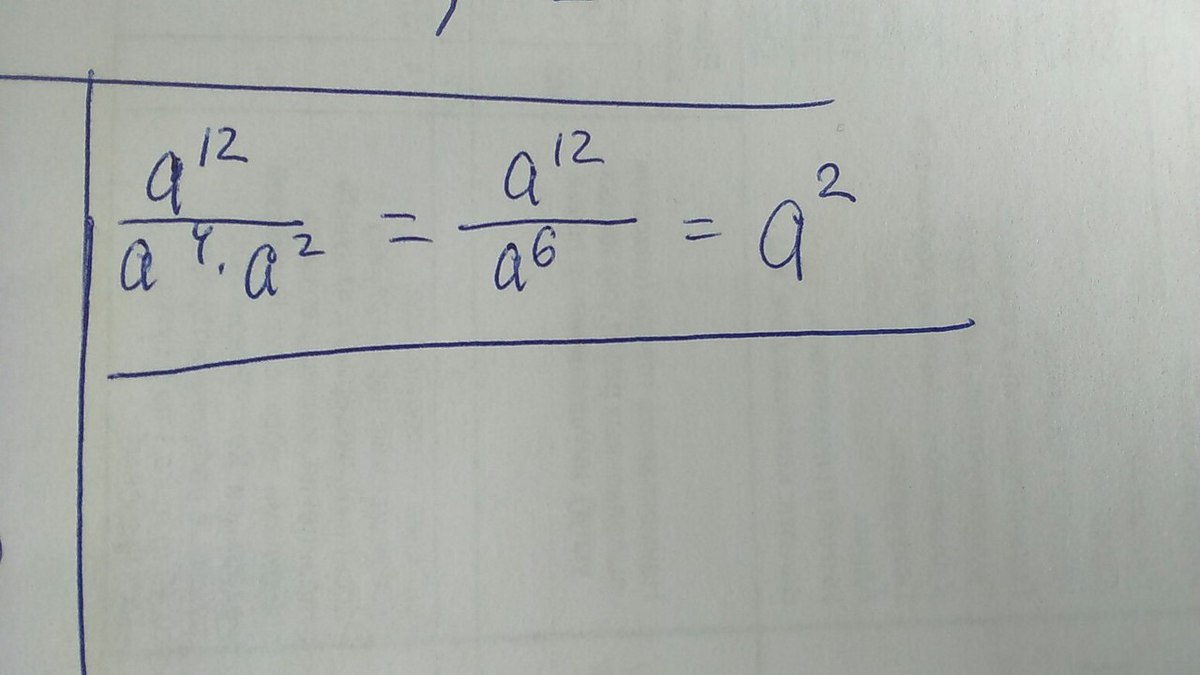 a^12 / (a^4 · a^2) = a^12 / a^6 = a^2